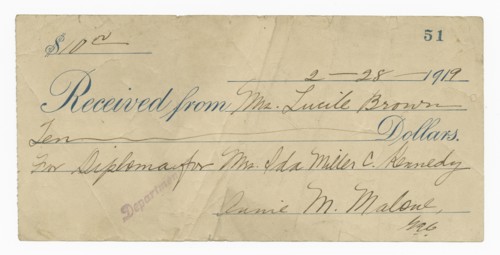 $10 00
51
2 — 28 — 1919
Received from Mrs. Lucile Brown
Ten Dollars.
For Diploma for Mrs. Ida Miller C. Kennedy
Annie M. Malone,